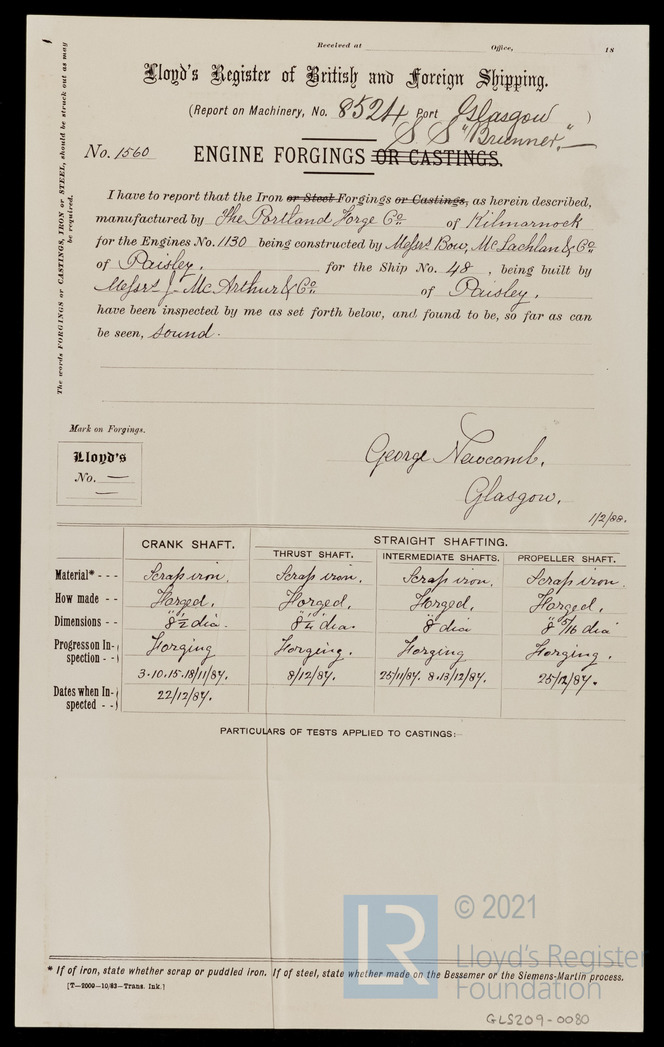 The words FORGINGS or CASTINGS, IRON or STEEL, should be struck out as may
be required.
Received at Office, 18
Lloyd's Register of British and Foreign Shipping.
(Report on Machinery, No. 8524 Port Glasgow )
S S "Brunner."
No. 1560 ENGINE FORGINGS OR CASTINGS.
I have to report that the Iron or Steel Forgings or Castings, as herein described,
manufactured by The Portland Forge Co of Kilmarnock
for the Engines No. 1130 being constructed by Messrs Bow, McLachlan & Co
of Paisley. for the Ship No. 48, being built by
Messrs J. McArthur & Co of Paisley.
have been inspected by me as set forth below, and found to be, so far as can
be seen, sound.
Mark on Forgings.
Lloyd's
No. —
—
George Newcomb.
Glasgow.
1/2/88.
CRANK SHAFT. STRAIGHT SHAFTING.
THRUST SHAFT. INTERMEDIATE SHAFTS. PROPELLER SHAFT.
Material* - - - Scrap iron. Scrap iron. Scrap iron. Scrap iron.
How made - - Forged. Forged. Forged. Forged.
Dimensions - - 8½" dia. 8¼" dia. 8" dia 8" 5/16 dia
Progress on Inspection - - Forging Forging. Forging Forging.
Dates when Inspected - - 3.10.15.18/11/87. 8/12/87. 25/11/87. 8.13/12/87. 25/12/87.
22/12/87.
PARTICULARS OF TESTS APPLIED TO CASTINGS:—
* If of iron, state whether scrap or puddled iron. If of steel, state whether made on the Bessemer or the Siemens-Martin process.
[T—2000—10/83—Trans. Ink.]
LR
© 2021
Lloyd's Register
Foundation
GLS209-0080